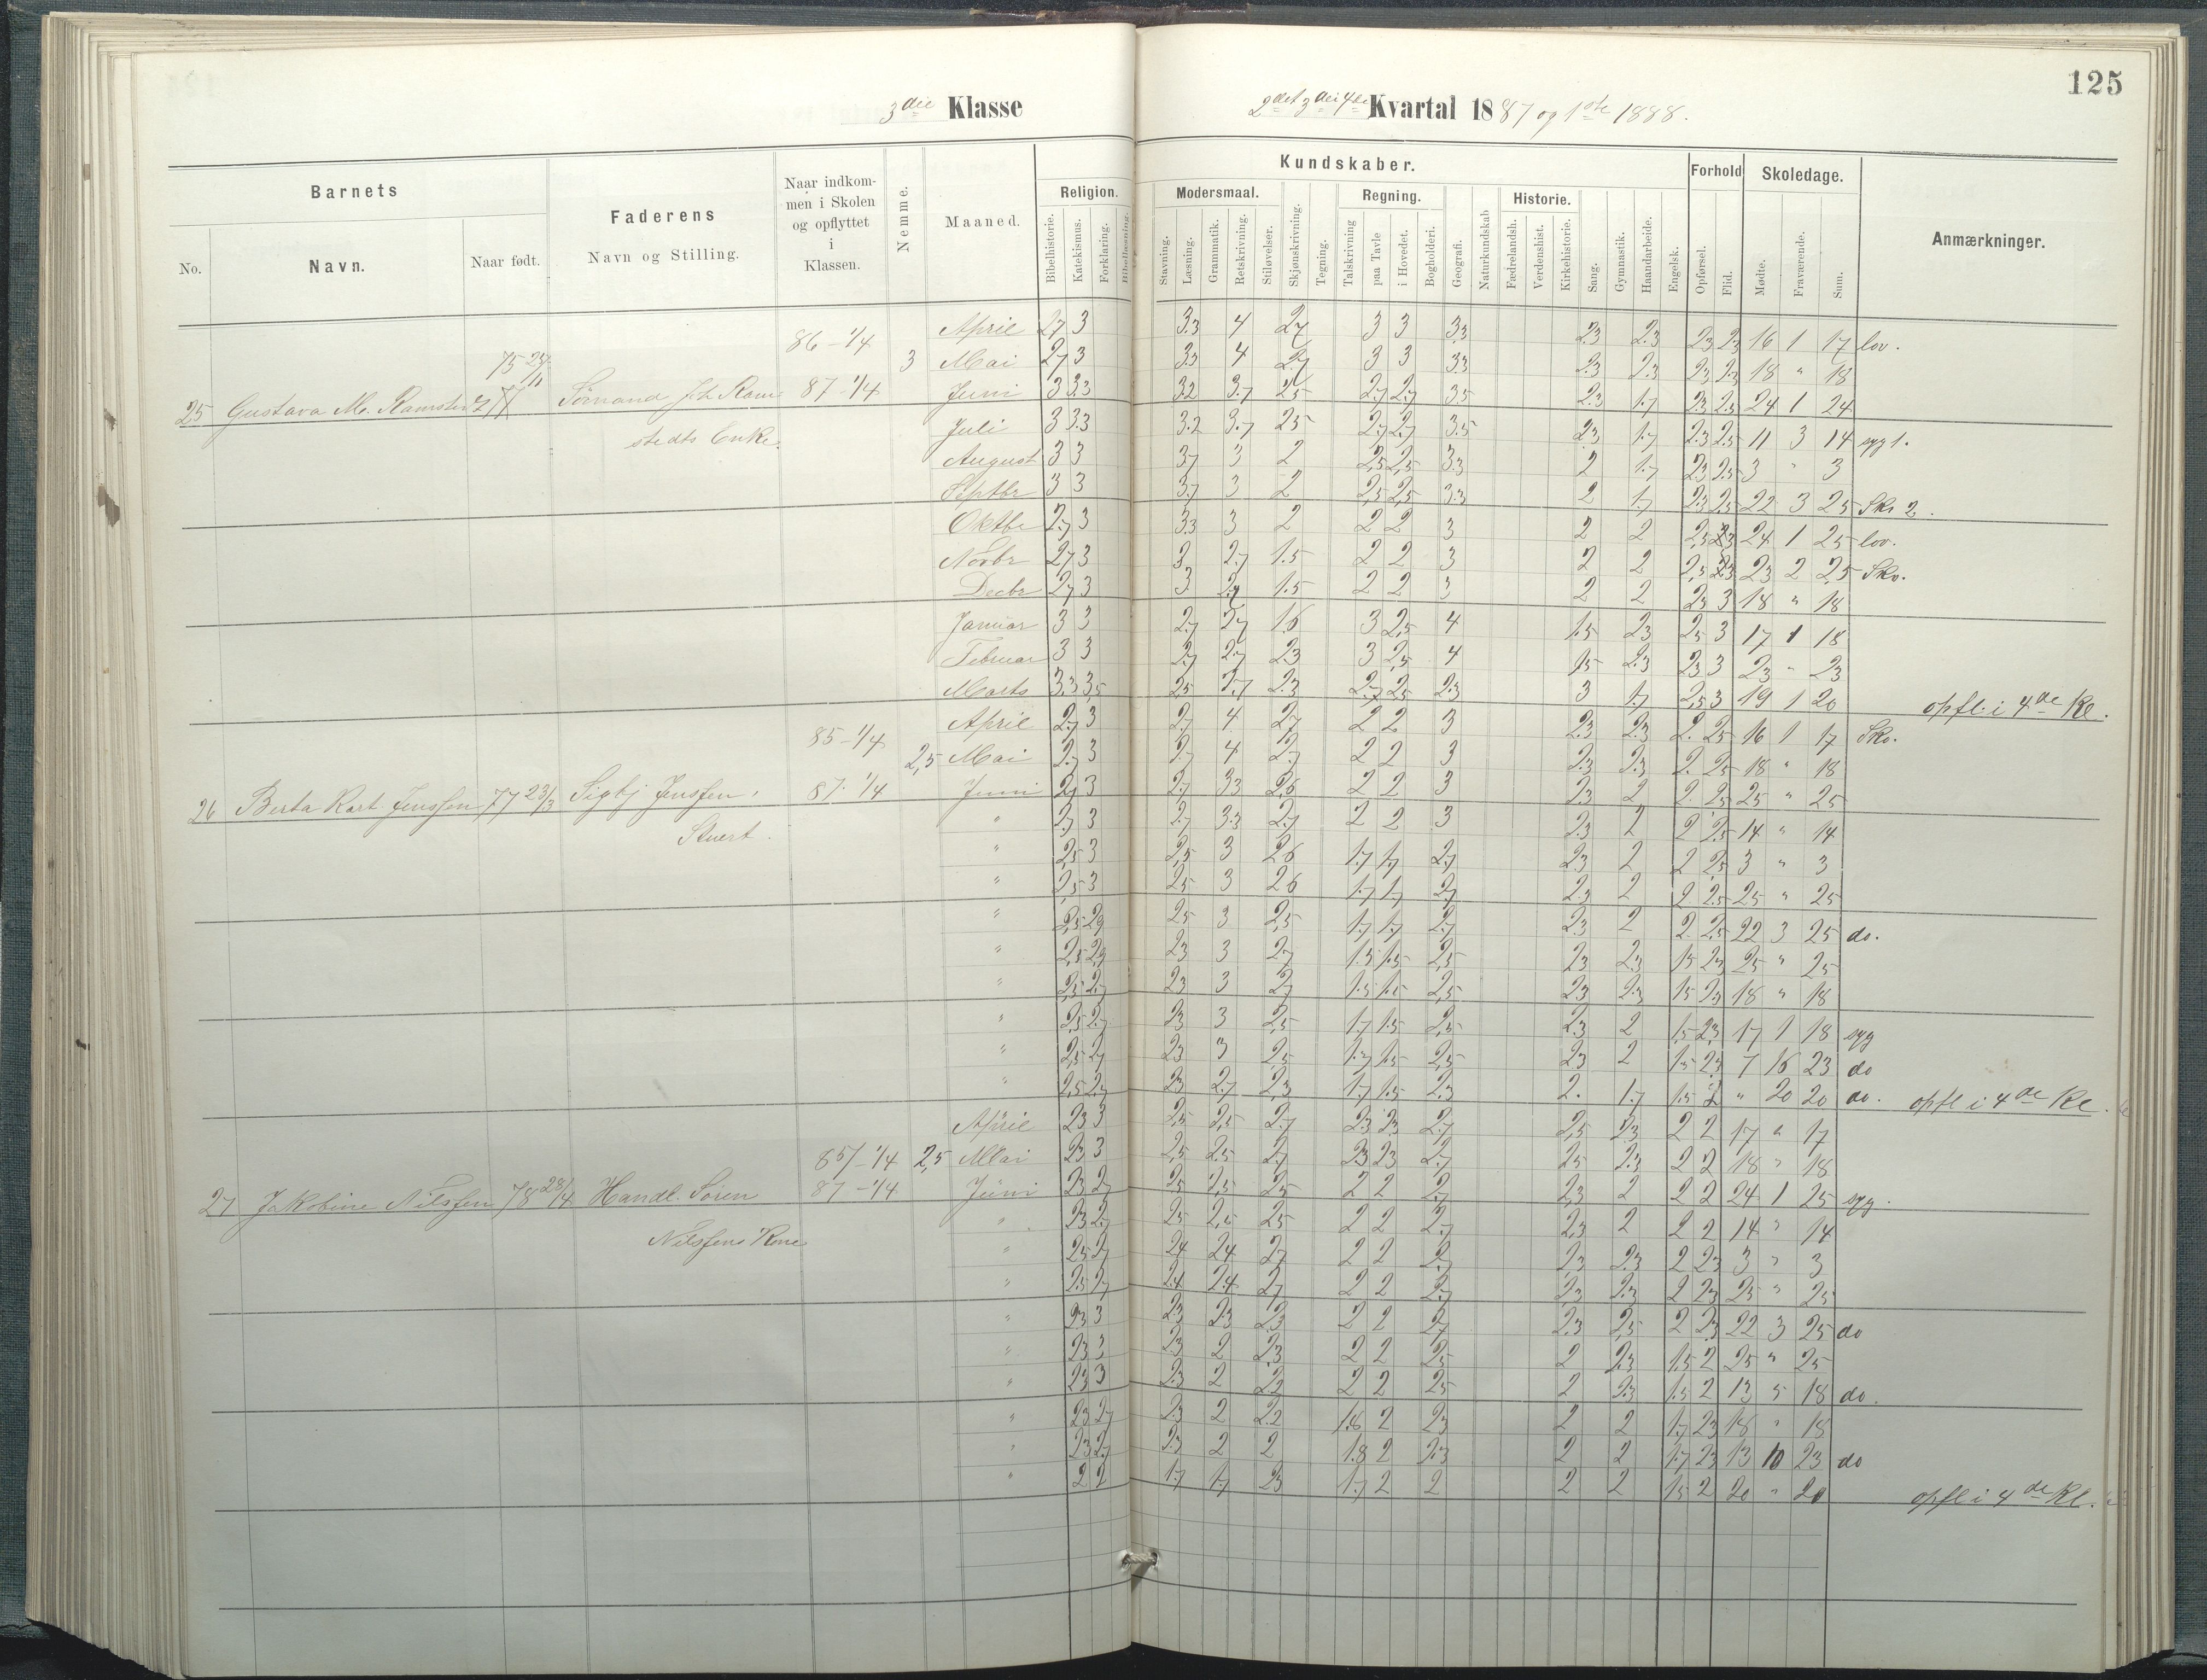 125
3die Klasse
2det 3die 4de Kvartal 1887 og 1ste 1888.
Barnets
No.
Navn.
Naar født.
Faderens
Navn og Stilling.
Naar indkom-
men i Skolen
og opflyttet
i
Klassen.
Nemme.
Maaned.
Religion.
Bibelhistorie.
Katekismus.
Forklaring.
Bibellæsning.
Kundskaber.
Modersmaal.
Stavning.
Læsning.
Grammatik.
Retskrivning.
Stiløvelser.
Skjønskrivning.
Tegning.
Regning.
Talskrivning
paa Tavle
i Hovedet.
Bogholderi.
Geografi.
Naturkundskab
Historie.
Fædrelandsh.
Verdenshist.
Kirkehistorie.
Sang.
Gymnastik.
Haandarbeide.
Engelsk.
Forhold
Opførsel.
Flid.
Skoledage.
Mødte.
Fraværende.
Sum.
Anmærkninger.
86-1/4 April 2.7 3 3.3 4 2.7 3 3 3.3 2.3 2.3 2.3 2.3 16 1 17 lov.
3 Mai 2.7 3 3.3 4 2.7 3 3 3.3 2.3 2.3 2.3 2.3 18 " 18
25 Gustava M. 87-1/4 Juni 3 3.3 3.2 3.7 2.5 2.7 2.7 3.5 2.3 1.7 2.3 2.5 24 1 24
stedts Enke. Juli 3 3.3 3.2 3.7 2.5 2.7 2.7 3.5 2.3 1.7 2.3 2.5 11 3 14 syg 1.
August 3 3 3.7 3 2 2,5 2,5 3.3 2 1.7 2.3 2.5 3 " 3
Septbr 3 3 3.7 3 2 2,5 2,5 3.3 2 1.7 2.3 2.5 22 3 25 Sko 2.
Oktbr 2.7 3 3.3 3 2 2 2 3 2 2 2,3 24 1 25 lov.
Novbr 2.7 3 3 2.7 1.5 2 2 3 2 2 23 2 25 Sko.
Decbr 2.7 3 3 2.7 1.5 2 2 3 2 2 2.3 3 18 " 18
Januar 3 3 2.7 2.7 1.6 3 2,5 4 1.5 2.3 2.5 3 17 1 18
Februar 3 3 2.7 2.7 2.3 3 2,5 4 1.5 2.3 2.3 3 23 " 23
Marts 3.3 3,5 2,5 2.7 2.3 2.7 2.5 2.3 3 1.7 2,5 3 19 1 20 opfl. i 4de Kl.
85-1/4 April 2.7 3 2.7 4 2.7 2 2 3 2.3 2.3 2. 2.5 16 1 17 Sko.
2,5 Mai 2.7 3 2.7 4 2.7 2 2 3 2.3 2.3 2. 2.5 18 " 18
26 Berta Kart. Jenssen 77 23/3 Sigbj Jenssen, 87-1/4 Juni 2.7 3 2.7 3.3 2,6 2 2 3 2.3 2 2 2.5 25 " 25
Stuert. " 2.7 3 2.7 3.3 2.7 2 2 3 2.3 2 2 2.5 14 " 14
" 2,5 3 2,5 3 2.6 1.7 1.7 2.7 2.3 2 2 2,5 3 " 3
" 2,5 3 2.5 3 2.6 1.7 1.7 2.7 2.3 2 2 2.5 25 " 25
" 2,5 2.9 2.5 3 2,5 1.7 1.7 2.7 2.3 2 2 2,5 22 3 25 do.
" 2,5 2.9 2.3 3 2.7 1.5 1.5 2,5 2.3 2.3 1.5 2.3 25 " 25
" 2,5 2.7 2.3 3 2.7 1.5 1.5 2,5 2.3 2.3 1.5 2.3 18 " 18
" 2,5 2.7 2.3 3 2,5 1.7 1.5 2,5 2.3 2 1.5 2.3 17 1 18 syg
" 2,5 2.7 2.3 3 2,5 1.7 1.5 2,5 2.3 2 1.5 2.3 7 16 23 do
" 2,5 2.7 2.3 2.7 2,3 1.7 1.5 2.3 2. 1.7 1.5 2 " 20 20 do. opfl i 4de Kl.
April 2.3 3 2,5 2,5 2.7 2.3 2.3 2.7 2,5 2.3 2 2 17 " 17
85-1/4 2,5 Mai 2.3 3 2,5 2.5 2.7 2.3 2.3 2.7 2.5 2.3 2 2 18 " 18
27 Jakobine Nilssen 78 28/4 Handl. Søren 87-1/4 Juni 2.3 2.7 2.5 2,5 2.5 2 2 2.7 2,3 2 2 2 24 1 25 syg.
Nilssens Kone " 2.3 2.7 2.5 2,5 2.5 2 2 2.7 2,3 2 2 2 14 " 14
" 2.5 2.7 2.4 2.4 2.7 2 2 2.7 2.3 2.3 2 2.3 3 " 3
" 2.5 2.7 2.4 2.4 2.7 2 2 2.7 2.3 2.3 2 2.3 25 " 25
" 2.3 3 2.3 2.3 2.3 2 2 2.7 2.3 2,5 2 2.3 22 3 25 do
" 2.3 3 2.3 2 2.3 2 2 2.5 2 2.3 1.5 2 25 " 25
" 2.3 3 2.3 2 2.2 2 2 2.5 2 2.3 1.5 2 13 5 18 do.
" 2.3 2.7 2.3 2 2.2 1.8 2 2.3 2 2 1.7 2.3 18 " 18
" 2.3 2.7 2.3 2 2 1.8 2 2.3 2 2 1.7 2.3 13 10 23 do
" 2 2 1.7 1.7 2.3 1.7 2 2 2 2 1.5 2 20 " 20 opfl i 4de Kl.